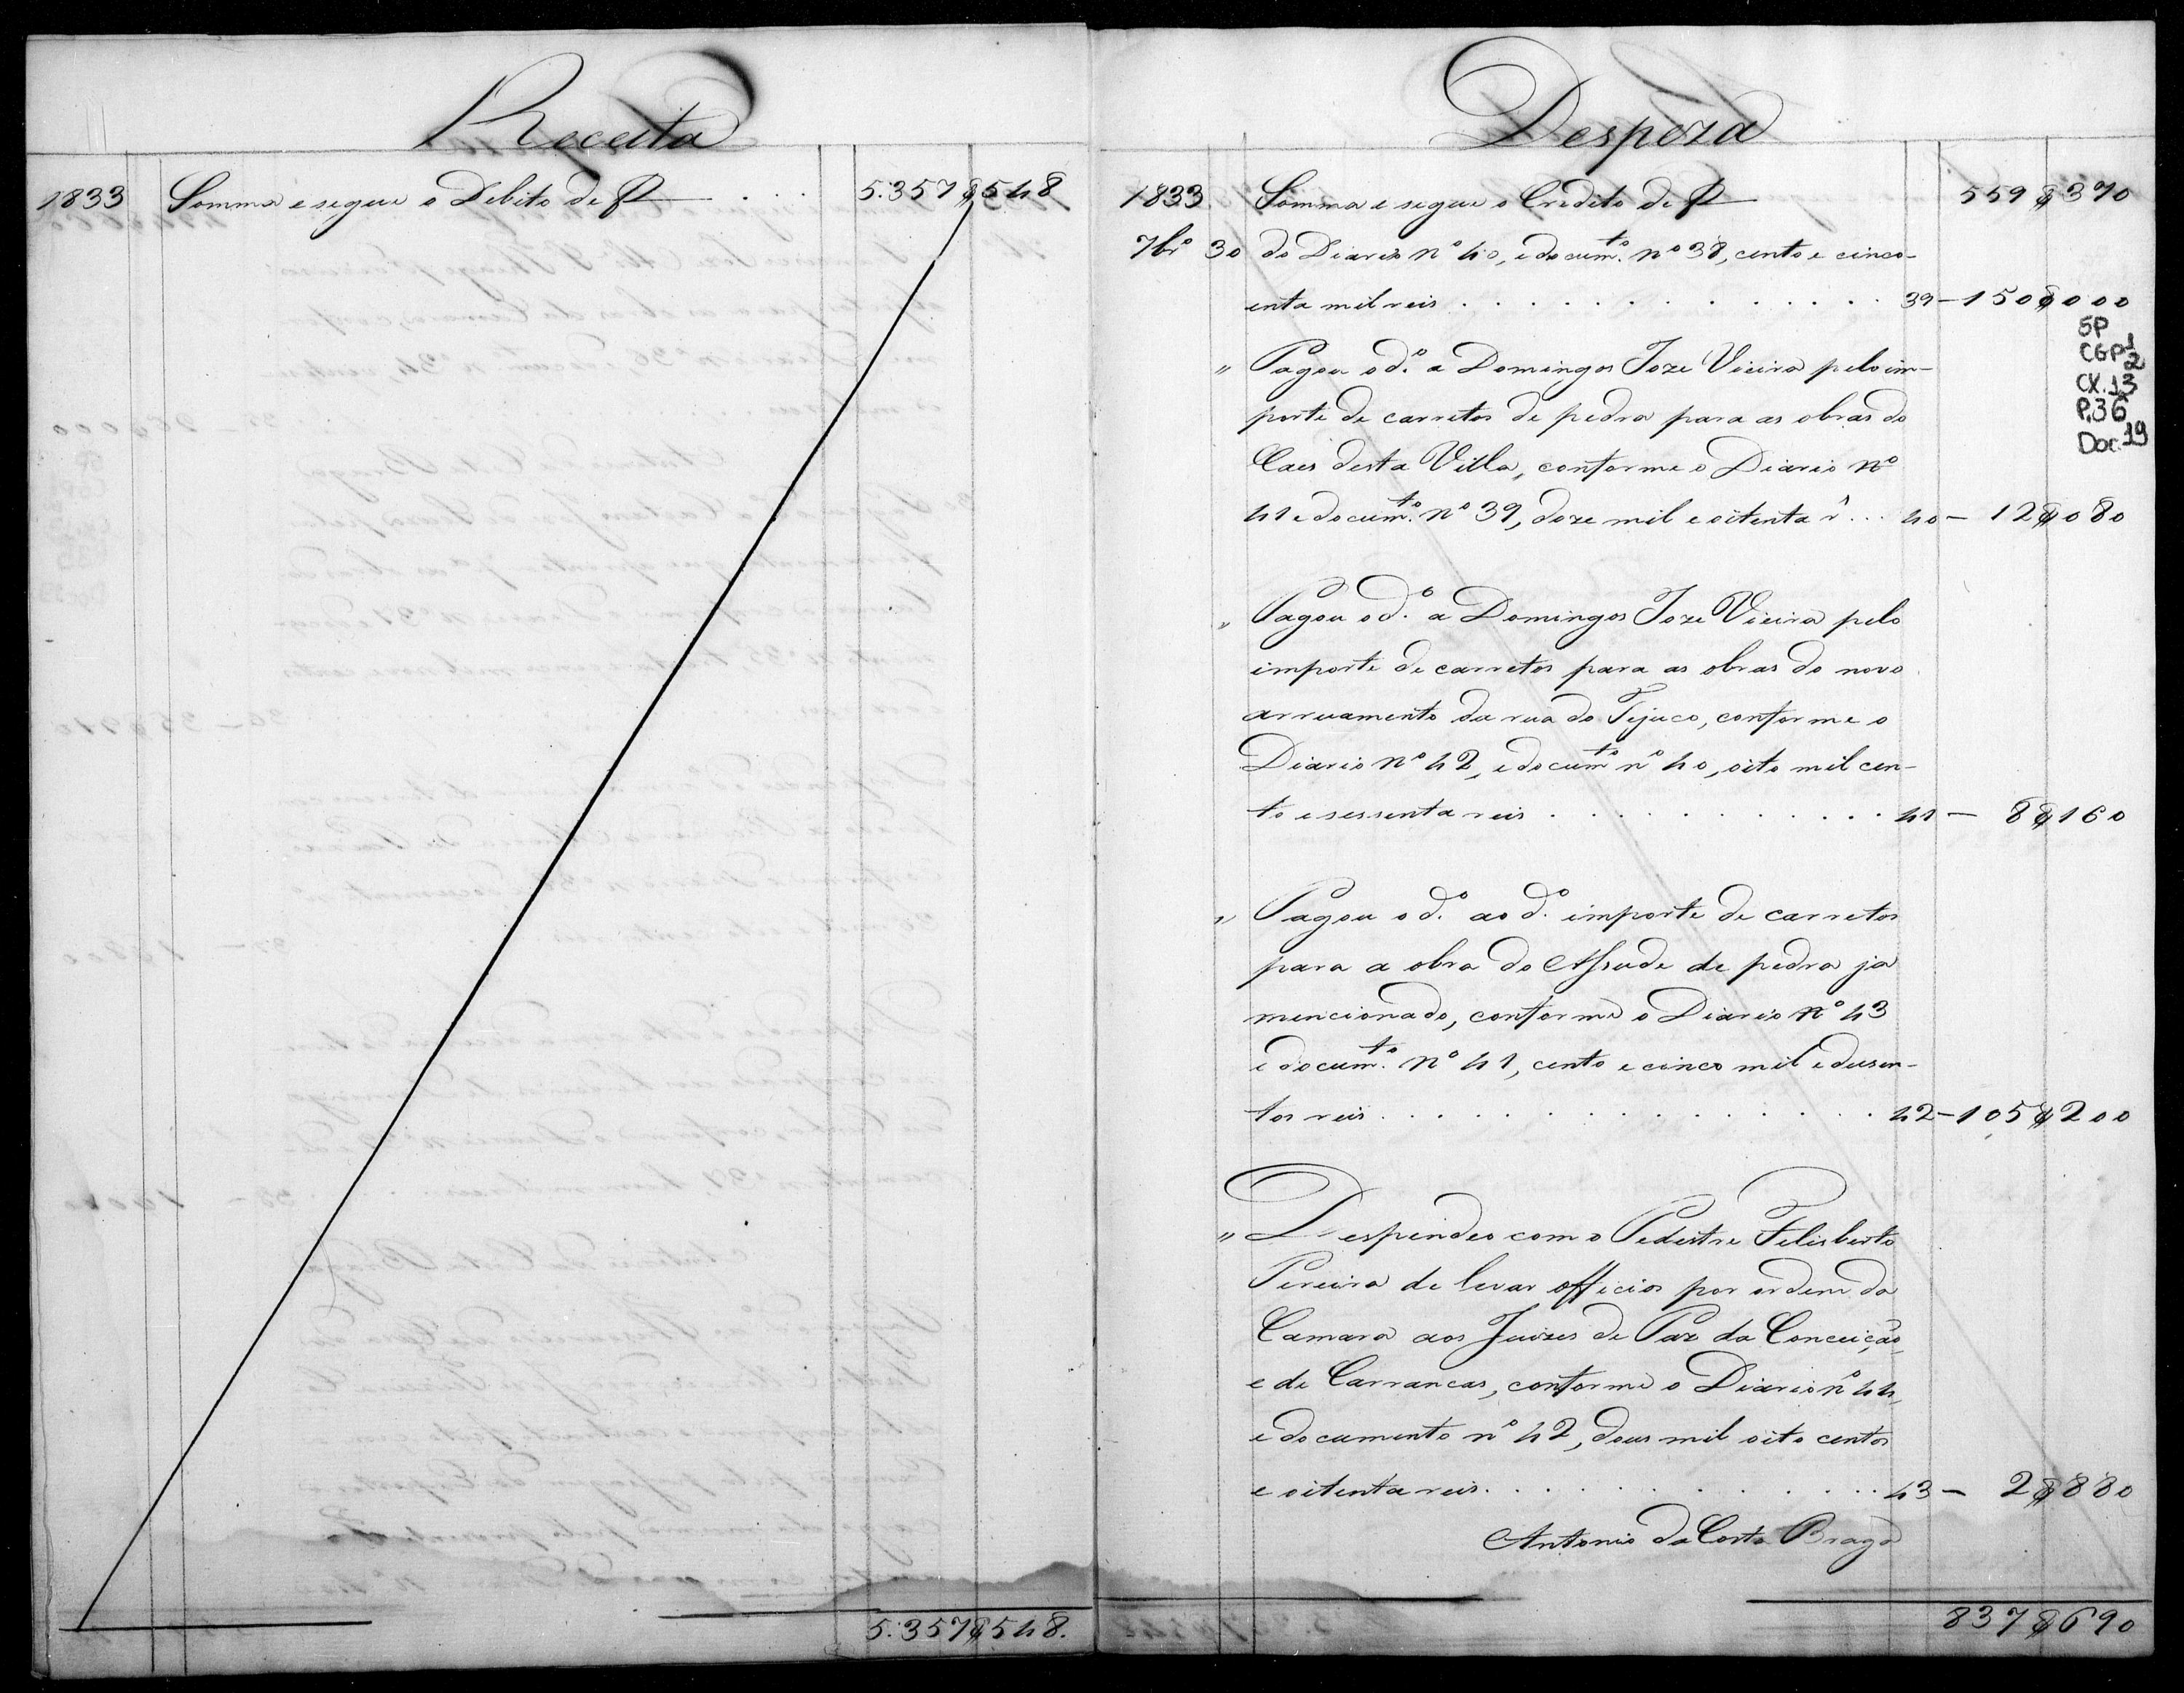 Receita
1833 Somma e segue o Debito de R 5:357$548
5:357$548.
Despeza
1833 Somma e segue o Credito de R 559$370
7brº 30 do Diario nº 40, e documto. nº 38, cento e cinco-
enta mil reis . . . . . . . . . . . . 39 - 150$000
SP
CGP 1
2
CX. 13
P. 36
Doc. 19
" Pagou o dº. a Domingos Joze Vieira pelo im-
porte de carretos de pedra para as obras do
Caes desta Villa, conforme o Diario nº
41 e documto. nº 39, doze mil e oitenta r. . . . 40 - 12$080
" Pagou o dº. a Domingos Joze Vieira pelo
importe de carretos para as obras do novo
arruamento da rua do Tejuco, conforme o
Diario nº 42, e documto nº 40, oito mil cen-
to e sessenta reis . . . . . . . . . . . 41 - 8$160
" Pagou o dº. ao dº. importe de carretos
para a obra do Assude de pedra ja
mencionado, conforme o Diario nº 43
e documto. nº 41, cento e cinco mil e dusen-
tos reis . . . . . . . . . . . . . . . 42 - 105$200
" Despendeo com o Pedestre Felisberto
Pereira de levar officios por ordem da
Camara aos Juizes de Paz da Conceição,
e de Carrancas, conforme o Diario nº 44,
e documento nº 42, dous mil oito centos
e oitenta reis . . . . . . . . . . . . 43 - 2$880
Antonio da Costa Braga
837$690